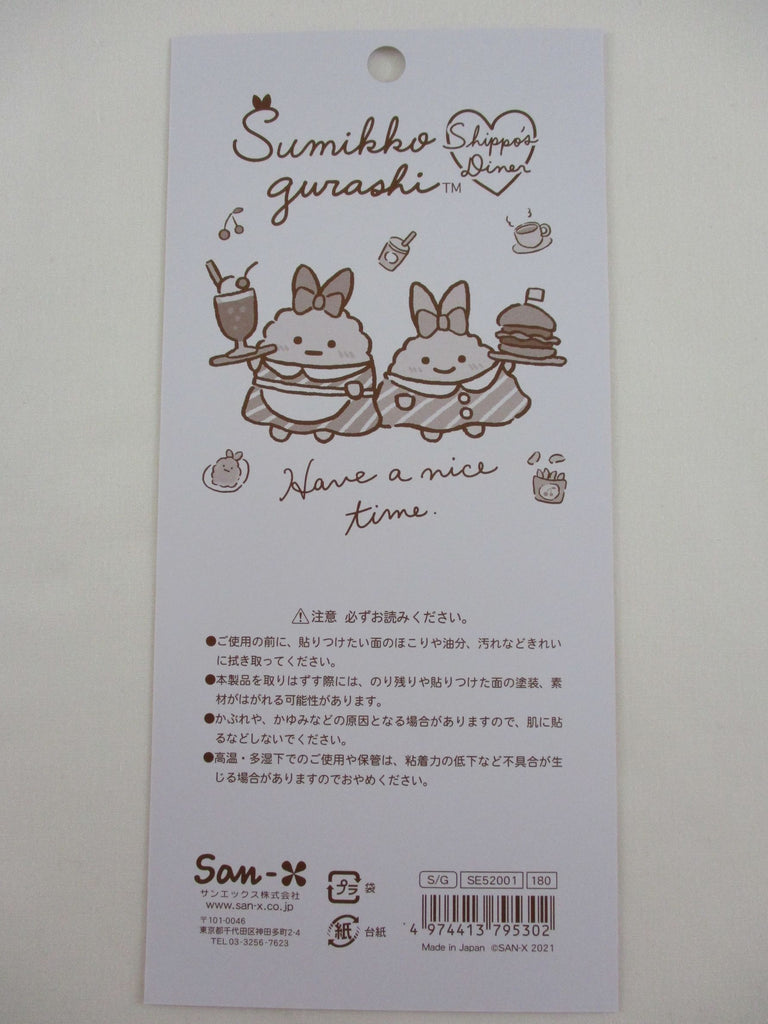 Sumikko
gurashi™
Shippo's
Diner
Have a nice
time.
⚠注意 必ずお読みください。
●ご使用の前に、貼りつけたい面のほこりや油分、汚れなどきれい
に拭き取ってください。
●本製品を取りはずす際には、のり残りや貼りつけた面の塗装、素
材がはがれる可能性があります。
●かぶれや、かゆみなどの原因となる場合がありますので、肌に貼
るなどしないでください。
●高温・多湿下でのご使用や保管は、粘着力の低下など不具合が生
じる場合がありますのでおやめください。
San-X
サンエックス株式会社
www.san-x.co.jp
〒101-0046
東京都千代田区神田多町2-4
TEL 03-3256-7623
プラ 袋
紙 台紙
S/G SE52001 180
4 974413 795302
Made in Japan ©SAN-X 2021